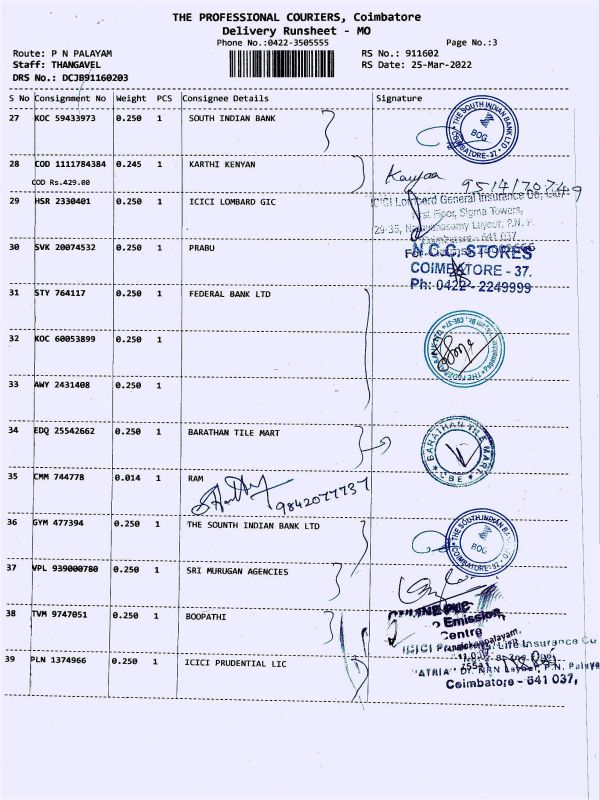 THE PROFESSIONAL COURIERS, Coimbatore
Delivery Runsheet - MO
Phone No.:0422-3505555 Page No.:3
Route: P N PALAYAM RS No.: 911602
Staff: THANGAVEL RS Date: 25-Mar-2022
DRS No.: DCJB91160203
S No Consignment No Weight PCS Consignee Details Signature
27 KOC 59433973 0.250 1 SOUTH INDIAN BANK
THE SOUTH INDIAN BANK LTD
BOG
COIMBATORE-37
28 COD 1111784384 0.245 1 KARTHI KENYAN
COD Rs.429.00
9514170749
29 HSR 2330401 0.250 1 ICICI LOMBARD GIC
ICICI Lombard General Insurance Co.
First Floor, Sigma Towers,
Layout, P.N.
Coimbatore - 641 037
30 SVK 20074532 0.250 1 PRABU
For N.C.C. STORES
COIMBATORE - 37.
Ph: 0422 - 2249999
31 STY 764117 0.250 1 FEDERAL BANK LTD
32 KOC 60053899 0.250 1
33 AWY 2431408 0.250 1
34 EDQ 25542662 0.250 1 BARATHAN TILE MART
BARATHAN TILE MART
CBE
35 CMM 744778 0.014 1 RAM
9842077737
36 GYM 477394 0.250 1 THE SOUNTH INDIAN BANK LTD
THE SOUTH INDIAN BANK
BOG
37 VPL 939000780 0.250 1 SRI MURUGAN AGENCIES
38 TVM 9747051 0.250 1 BOOPATHI
Emission
Centre
39 PLN 1374966 0.250 1 ICICI PRUDENTIAL LIC
ICICI Life Insurance Co
"ATRIA" Layout, P.N. Palaya
Coimbatore - 641 037,